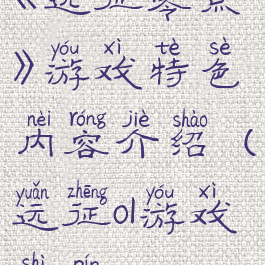 《远征零点
yóu xì tè sè
》游戏特色
nèi róng jiè shào
内容介绍（
yuǎn zhēng yóu xì
远征01游戏
shì pín